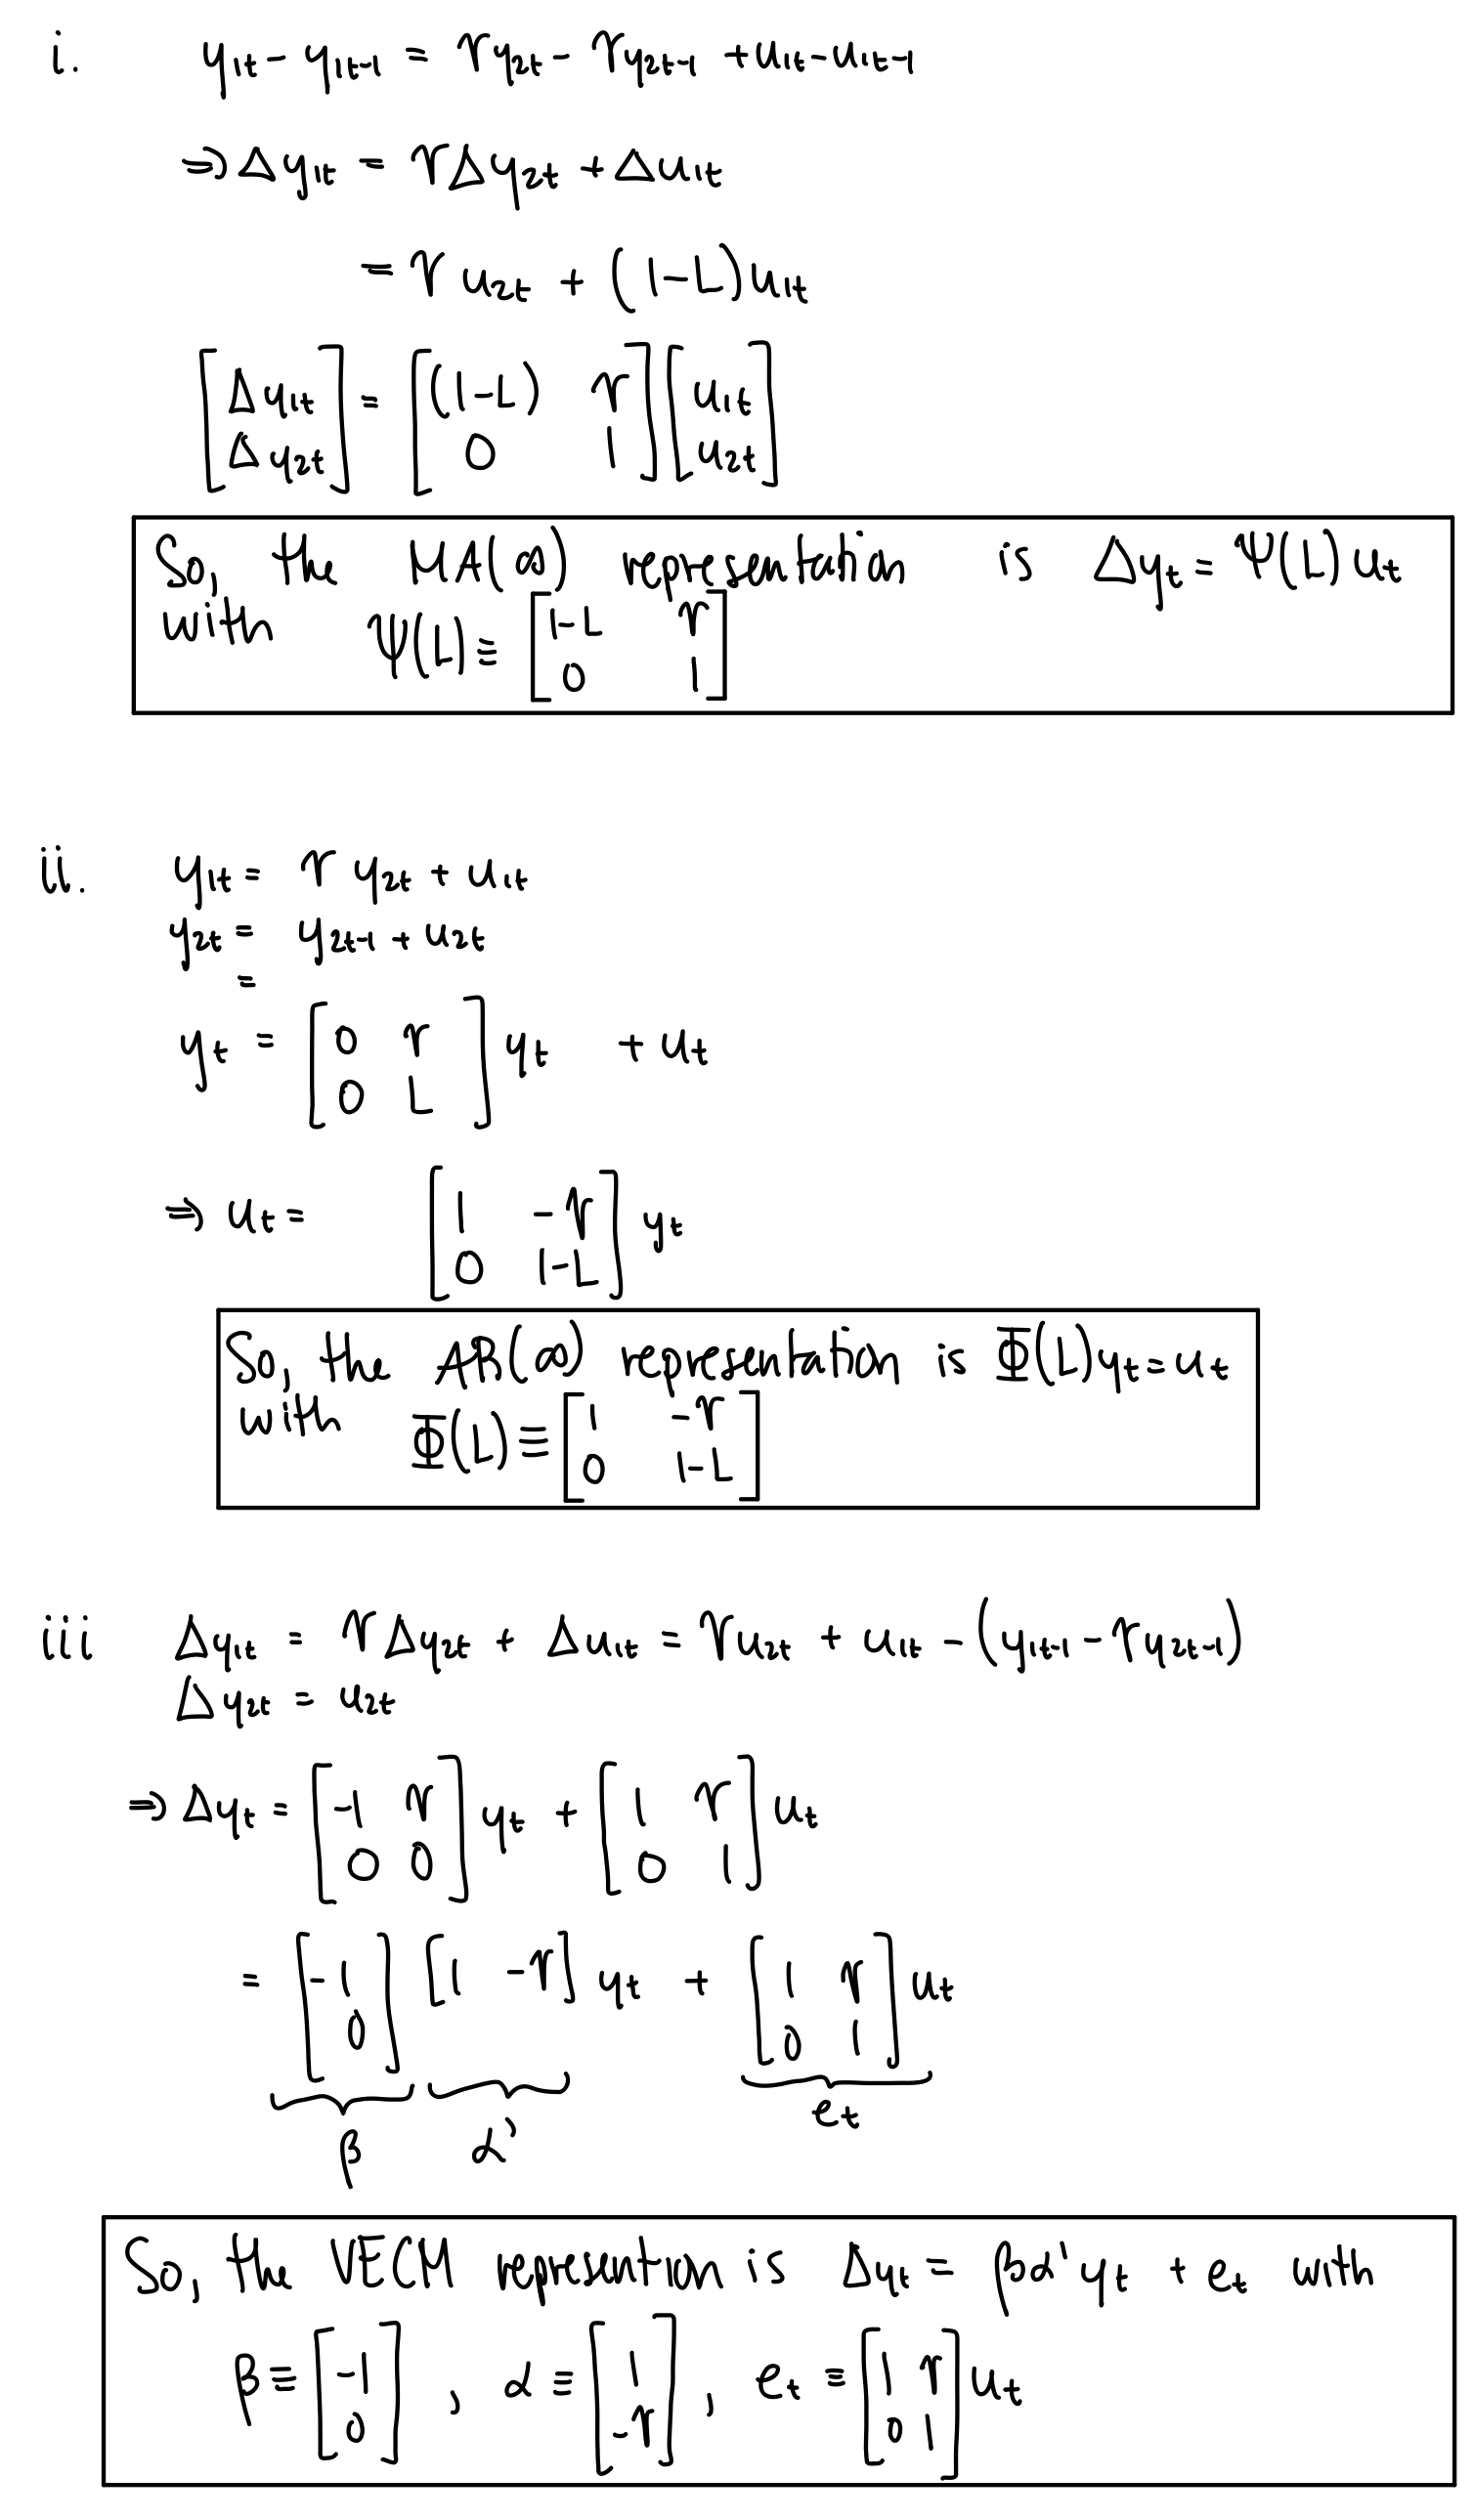 i. y₁ₜ - y₁ₜ₋₁ = γy₂ₜ - γy₂ₜ₋₁ + u₁ₜ - u₁ₜ₋₁
⇒ Δy₁ₜ = γΔy₂ₜ + Δu₁ₜ
= γu₂ₜ + (1-L)u₁ₜ
[Δy₁ₜ; Δy₂ₜ] = [(1-L) γ; 0 1] [u₁ₜ; u₂ₜ]
So, the MA(∞) representation is Δyₜ = Ψ(L)uₜ
with Ψ(L) ≡ [1-L γ; 0 1]
ii. y₁ₜ = γy₂ₜ + u₁ₜ
y₂ₜ = y₂ₜ₋₁ + u₂ₜ
=
yₜ = [0 γ; 0 L] yₜ + uₜ
⇒ uₜ = [1 -γ; 0 1-L] yₜ
So, the AR(∞) representation is Φ(L)yₜ = uₜ
with Φ(L) ≡ [1 -γ; 0 1-L]
iii Δy₁ₜ = γΔy₂ₜ + Δu₁ₜ = γu₂ₜ + u₁ₜ - (y₁ₜ₋₁ - γy₂ₜ₋₁)
Δy₂ₜ = u₂ₜ
⇒ Δyₜ = [-1 γ; 0 0] yₜ + [1 γ; 0 1] uₜ
= [-1; 0] [1 -γ] yₜ + [1 γ; 0 1] uₜ
β α' eₜ
So, the VECM representation is Δyₜ = βα'yₜ + eₜ with
β ≡ [-1; 0], α ≡ [1; -γ], eₜ ≡ [1 γ; 0 1] uₜ